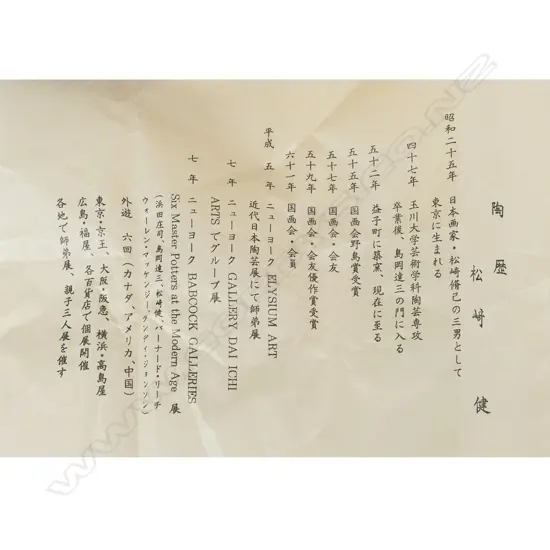 陶歴
松崎 健
昭和二十五年 日本画家・松崎脩己の三男として
東京に生まれる
四十七年 玉川大学芸術学科陶芸専攻
卒業後、島岡達三の門に入る
五十二年 益子町に築窯、現在に至る
五十五年 国画会野島賞受賞
五十七年 国画会・会友
五十九年 国画会・会友優作賞受賞
六十一年 国画会・会員
平成 五年 ニューヨーク ELYSIUM ART
近代日本陶芸展にて師弟展
七年 ニューヨーク GALLERY DAI ICHI
ARTSでグループ展
七年 ニューヨーク BABCOCK GALLERIES
Six Master Potters at the Modern Age 展
(浜田庄司、島岡達三、松崎健、バーナード・リーチ
ウォーレン・マッケンジー、ランディ・ジョンソン)
外遊 六回(カナダ、アメリカ、中国)
東京・京王、大阪・阪急、横浜・高島屋
広島・福屋、各百貨店で個展開催
各地で師弟展、親子三人展を催す